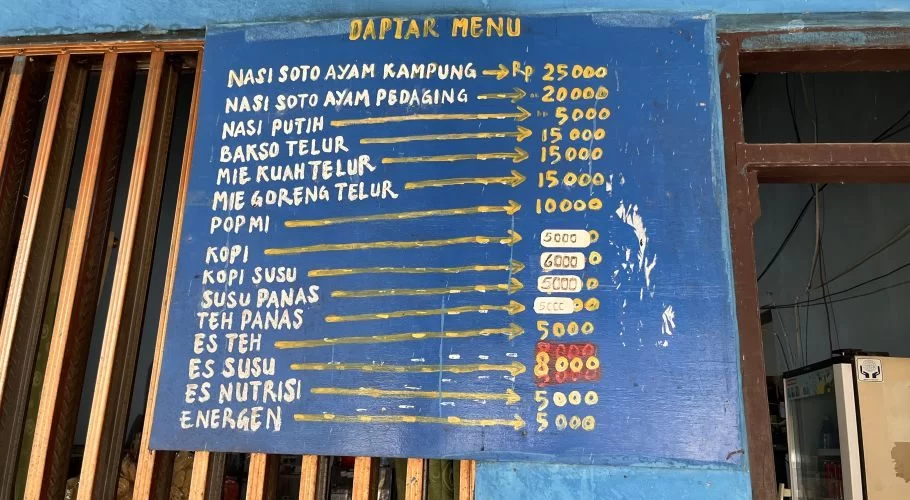 DAPTAR MENU
NASI SOTO AYAM KAMPUNG → Rp 25000
NASI SOTO AYAM PEDAGING → 20000
NASI PUTIH → 5000
BAKSO TELUR → 15000
MIE KUAH TELUR → 15000
MIE GORENG TELUR → 15000
POP MI → 10000
KOPI → 5000
KOPI SUSU → 6000
SUSU PANAS → 5000
TEH PANAS → 5000
ES TEH → 5000
ES SUSU → 8000
ES NUTRISI → 5000
ENERGEN → 5000